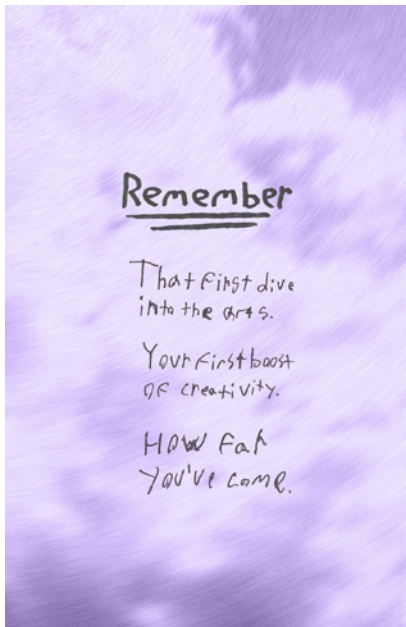 Remember
That first dive
into the arts.
Your first boost
of creativity.
How far
You've come.